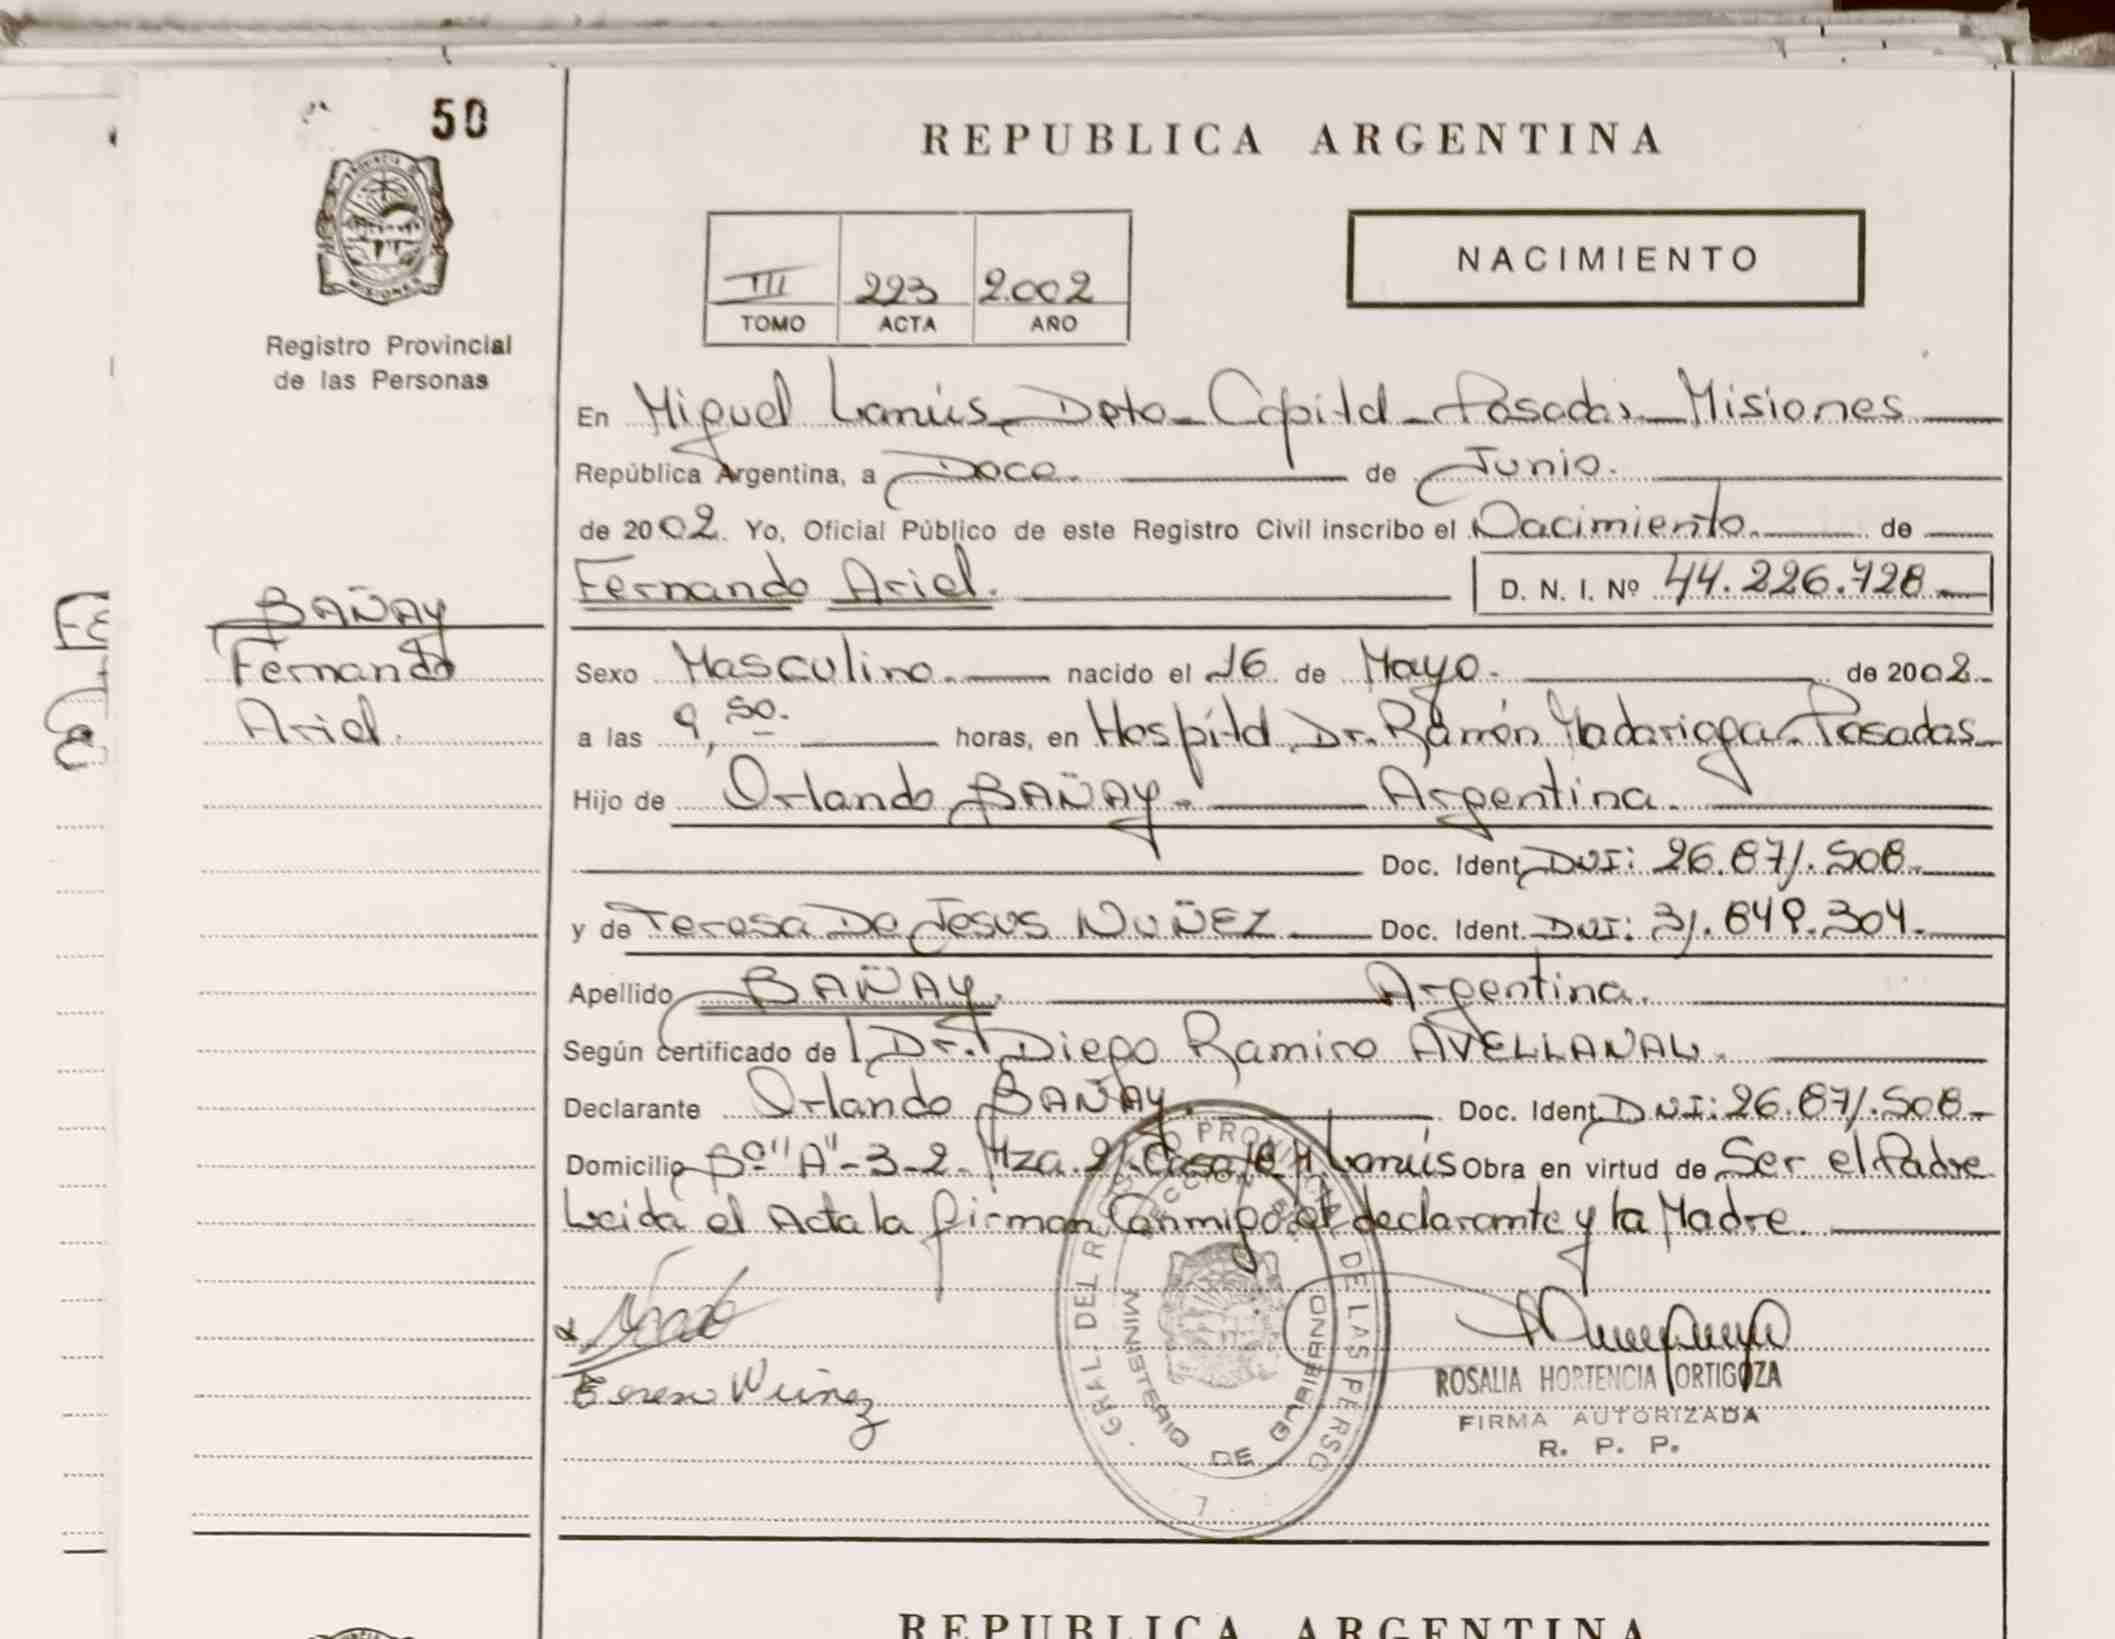 50
REPUBLICA ARGENTINA
NACIMIENTO
III 223 2.002
TOMO ACTA AÑO
Registro Provincial
de las Personas
En Miguel Lanús - Dpto - Capital - Posadas - Misiones
República Argentina, a Doce. de Junio.
de 2002. Yo, Oficial Público de este Registro Civil inscribo el Nacimiento. de
Fernando Ariel. D. N. I. Nº 44.226.728
BAÑAY
Fernando
Ariel.
Sexo Masculino. nacido el 16 de Mayo. de 2002.
a las 9,50. horas, en Hospital Dr. Ramón Madariaga - Posadas
Hijo de Orlando BAÑAY. Argentina.
Doc. Ident. DNI: 26.871.508.
y de Teresa De Jesus NUÑEZ Doc. Ident. DNI: 31.849.304.
Apellido BAÑAY. Argentina.
Según certificado de Dr. Diego Ramiro AVELLANAL.
Declarante Orlando BAÑAY. Doc. Ident. DNI: 26.871.508-
Domicilio Bº "A"-3-2. Mza. Casa M. Lanús Obra en virtud de Ser el Padre
Leida el Acta la firman Conmigo el declarante y la Madre.
Nuñez
ROSALIA HORTENCIA ORTIGOZA
FIRMA AUTORIZADA
R. P. P.
GRAL. DEL PROVINCIAL DE LAS PERSO
MINISTERIO DE GOBIERNO
7
REPUBLICA ARGENTINA